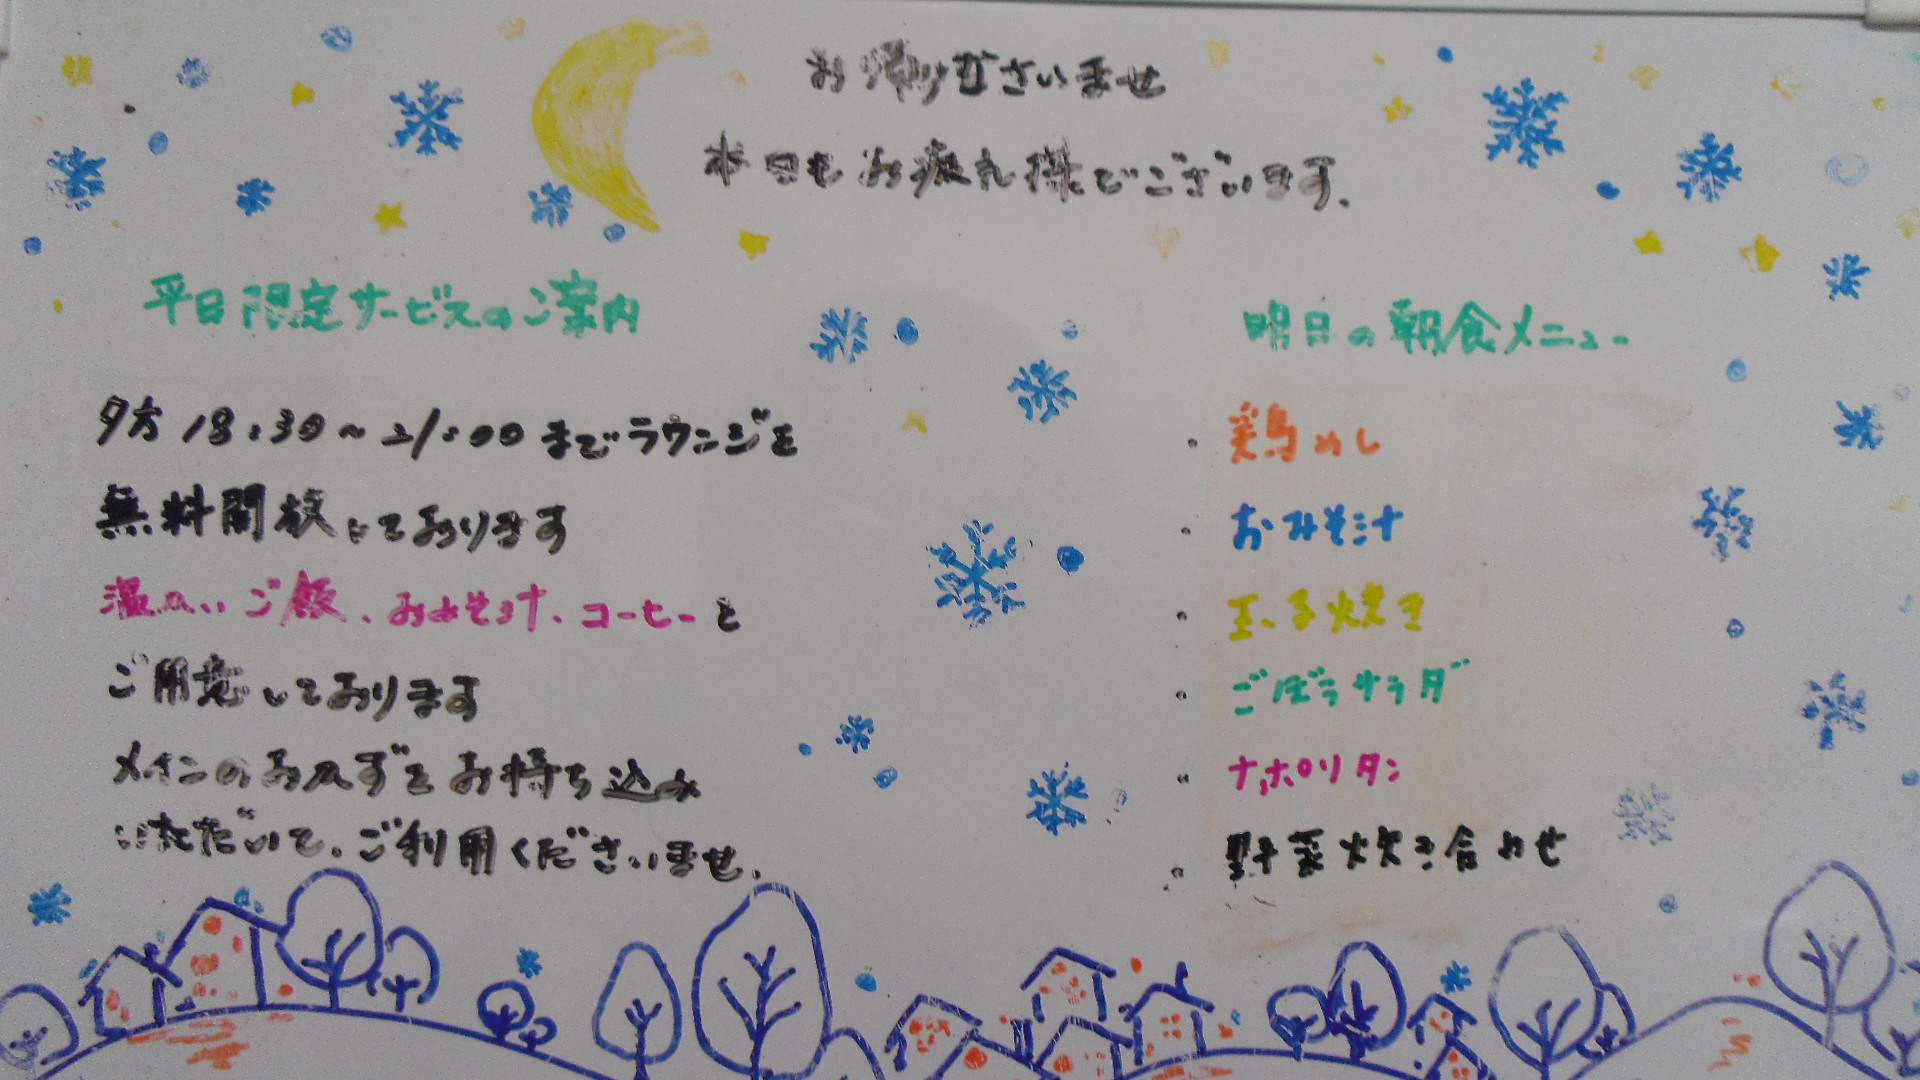 お帰りなさいませ
本日もお疲れ様でございます.
平日限定サービスのご案内
夕方 18:30～21:00 までラウンジを
無料開放しております
温かいご飯、おみそ汁、コーヒーを
ご用意しております
メインのおかずをお持ち込み
いただいて、ご利用くださいませ.
明日の朝食メニュー
・鶏めし
・おみそ汁
・玉子焼き
・ごぼうサラダ
・ナポリタン
・野菜炊き合わせ